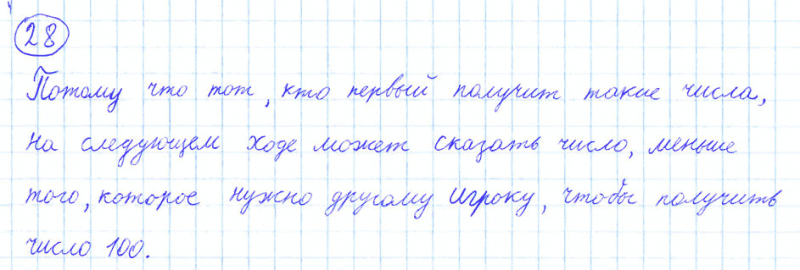 28
Потому что тот, кто первый получит такие числа,
на следующем ходе может сказать число, меньше
того, которое нужно другому игроку, чтобы получить
число 100.